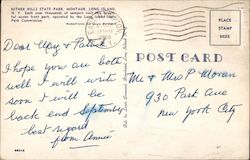 HITHER HILLS STATE PARK, MONTAUK, LONG ISLAND,
N. Y. Each year thousands of campers
ful ocean front park, operated by the Long Island State
Park Commission
PLACE
STAMP
HERE
POST CARD
Dear May & Patrick
I hope you are both
well I will write
soon I will be
back end September
best regard
from Annie
Mr & Mrs P Moran
930 Park Ave
New York City